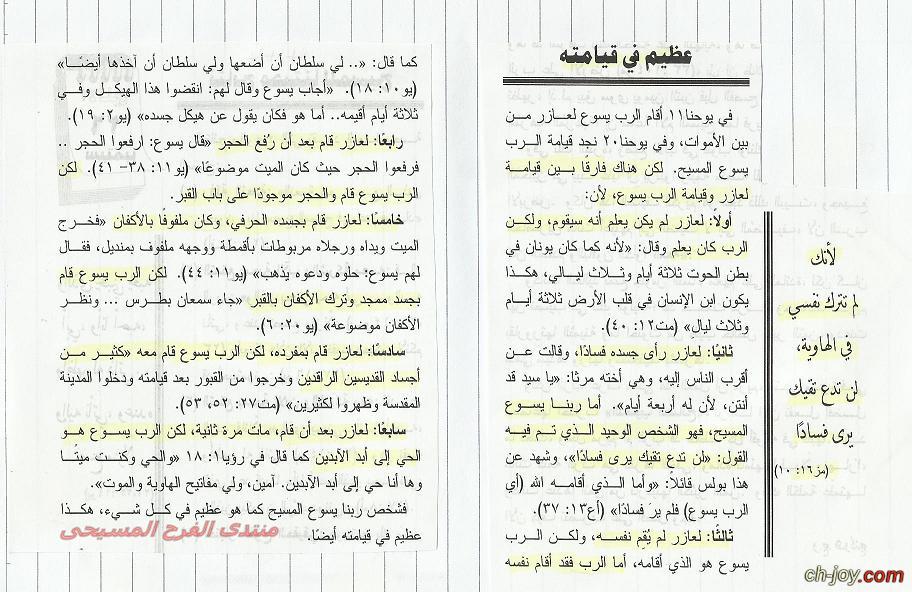 عظيم في قيامته
في يوحنا١١ أقام الرب يسوع لعازر من
بين الأموات، وفي يوحنا٢٠ نجد قيامة الرب
يسوع المسيح. لكن هناك فارقًا بين قيامة
لعازر وقيامة الرب يسوع، لأن:
أولاً: لعازر لم يكن يعلم أنه سيقوم، ولكن
الرب كان يعلم وقال: «لأنه كما كان يونان في
بطن الحوت ثلاثة أيام وثلاث ليالي، هكذا
يكون ابن الإنسان في قلب الأرض ثلاثة أيام
وثلاث ليالٍ» (مت١٢: ٤٠).
ثانيًا: لعازر رأى جسده فسادًا، وقالت عن
أقرب الناس إليه، وهي أخته مرثا: «يا سيد قد
أنتن، لأن له أربعة أيام». أما ربنا يسوع
المسيح، فهو الشخص الوحيد الذي تم فيه
القول: «لن تدع تقيك يرى فسادًا»، وشهد عن
هذا بولس قائلاً: «وأما الذي أقامه الله (أي
الرب يسوع) فلم يرَ فسادًا» (أع١٣: ٣٧).
ثالثًا: لعازر لم يُقِم نفسه، ولكن الرب
يسوع هو الذي أقامه، أما الرب فقد أقام نفسه
لأنك
لم تترك نفسي
في الهاوية،
لن تدع تقيك
يرى فسادًا
(مز١٦: ١٠)
كما قال: «.. لي سلطان أن أضعها ولي سلطان أن آخذها أيضًا»
(يو١٠: ١٨). «أجاب يسوع وقال لهم: انقضوا هذا الهيكل وفي
ثلاثة أيام أقيمه.. أما هو فكان يقول عن هيكل جسده» (يو٢: ١٩).
رابعًا: لعازر قام بعد أن رُفع الحجر «قال يسوع: ارفعوا الحجر ..
فرفعوا الحجر حيث كان الميت موضوعًا» (يو١١: ٣٨– ٤١). لكن
الرب يسوع قام والحجر موجودًا على باب القبر.
خامسًا: لعازر قام بجسده الحرفي، وكان ملفوفًا بالأكفان «فخرج
الميت ويداه ورجلاه مربوطات بأقمطة ووجهه ملفوف بمنديل، فقال
لهم يسوع: حلوه ودعوه يذهب» (يو١١: ٤٤). لكن الرب يسوع قام
بجسد ممجد وترك الأكفان بالقبر «جاء سمعان بطرس ... ونظر
الأكفان موضوعة» (يو٢٠: ٦).
سادسًا: لعازر قام بمفرده، لكن الرب يسوع قام معه «كثير من
أجساد القديسين الراقدين وخرجوا من القبور بعد قيامته ودخلوا المدينة
المقدسة وظهروا لكثيرين» (مت٢٧: ٥٢، ٥٣).
سابعًا: لعازر بعد أن قام، مات مرة ثانية، لكن الرب يسوع هو
الحي إلى أبد الآبدين كما قال في رؤيا١: ١٨ «والحي وكنت ميتًا
وها أنا حي إلى أبد الآبدين. آمين، ولي مفاتيح الهاوية والموت».
فشخص ربنا يسوع المسيح كما هو عظيم في كل شيء، هكذا
عظيم في قيامته أيضًا.
منتدى الفرح المسيحى
ch-joy.com